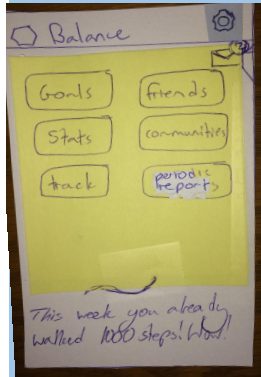 Balance
Goals
friends
Stats
communities
track
periodic
reports
This week you already
walked 1000 steps! Wow!